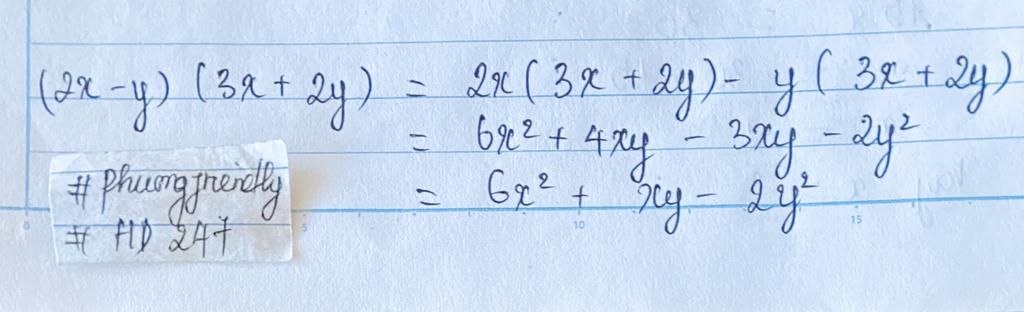 (2x - y) (3x + 2y) = 2x (3x + 2y) - y (3x + 2y)
= 6x² + 4xy - 3xy - 2y²
= 6x² + xy - 2y²
# phuongfriendly
# HD 247
0 5 10 15